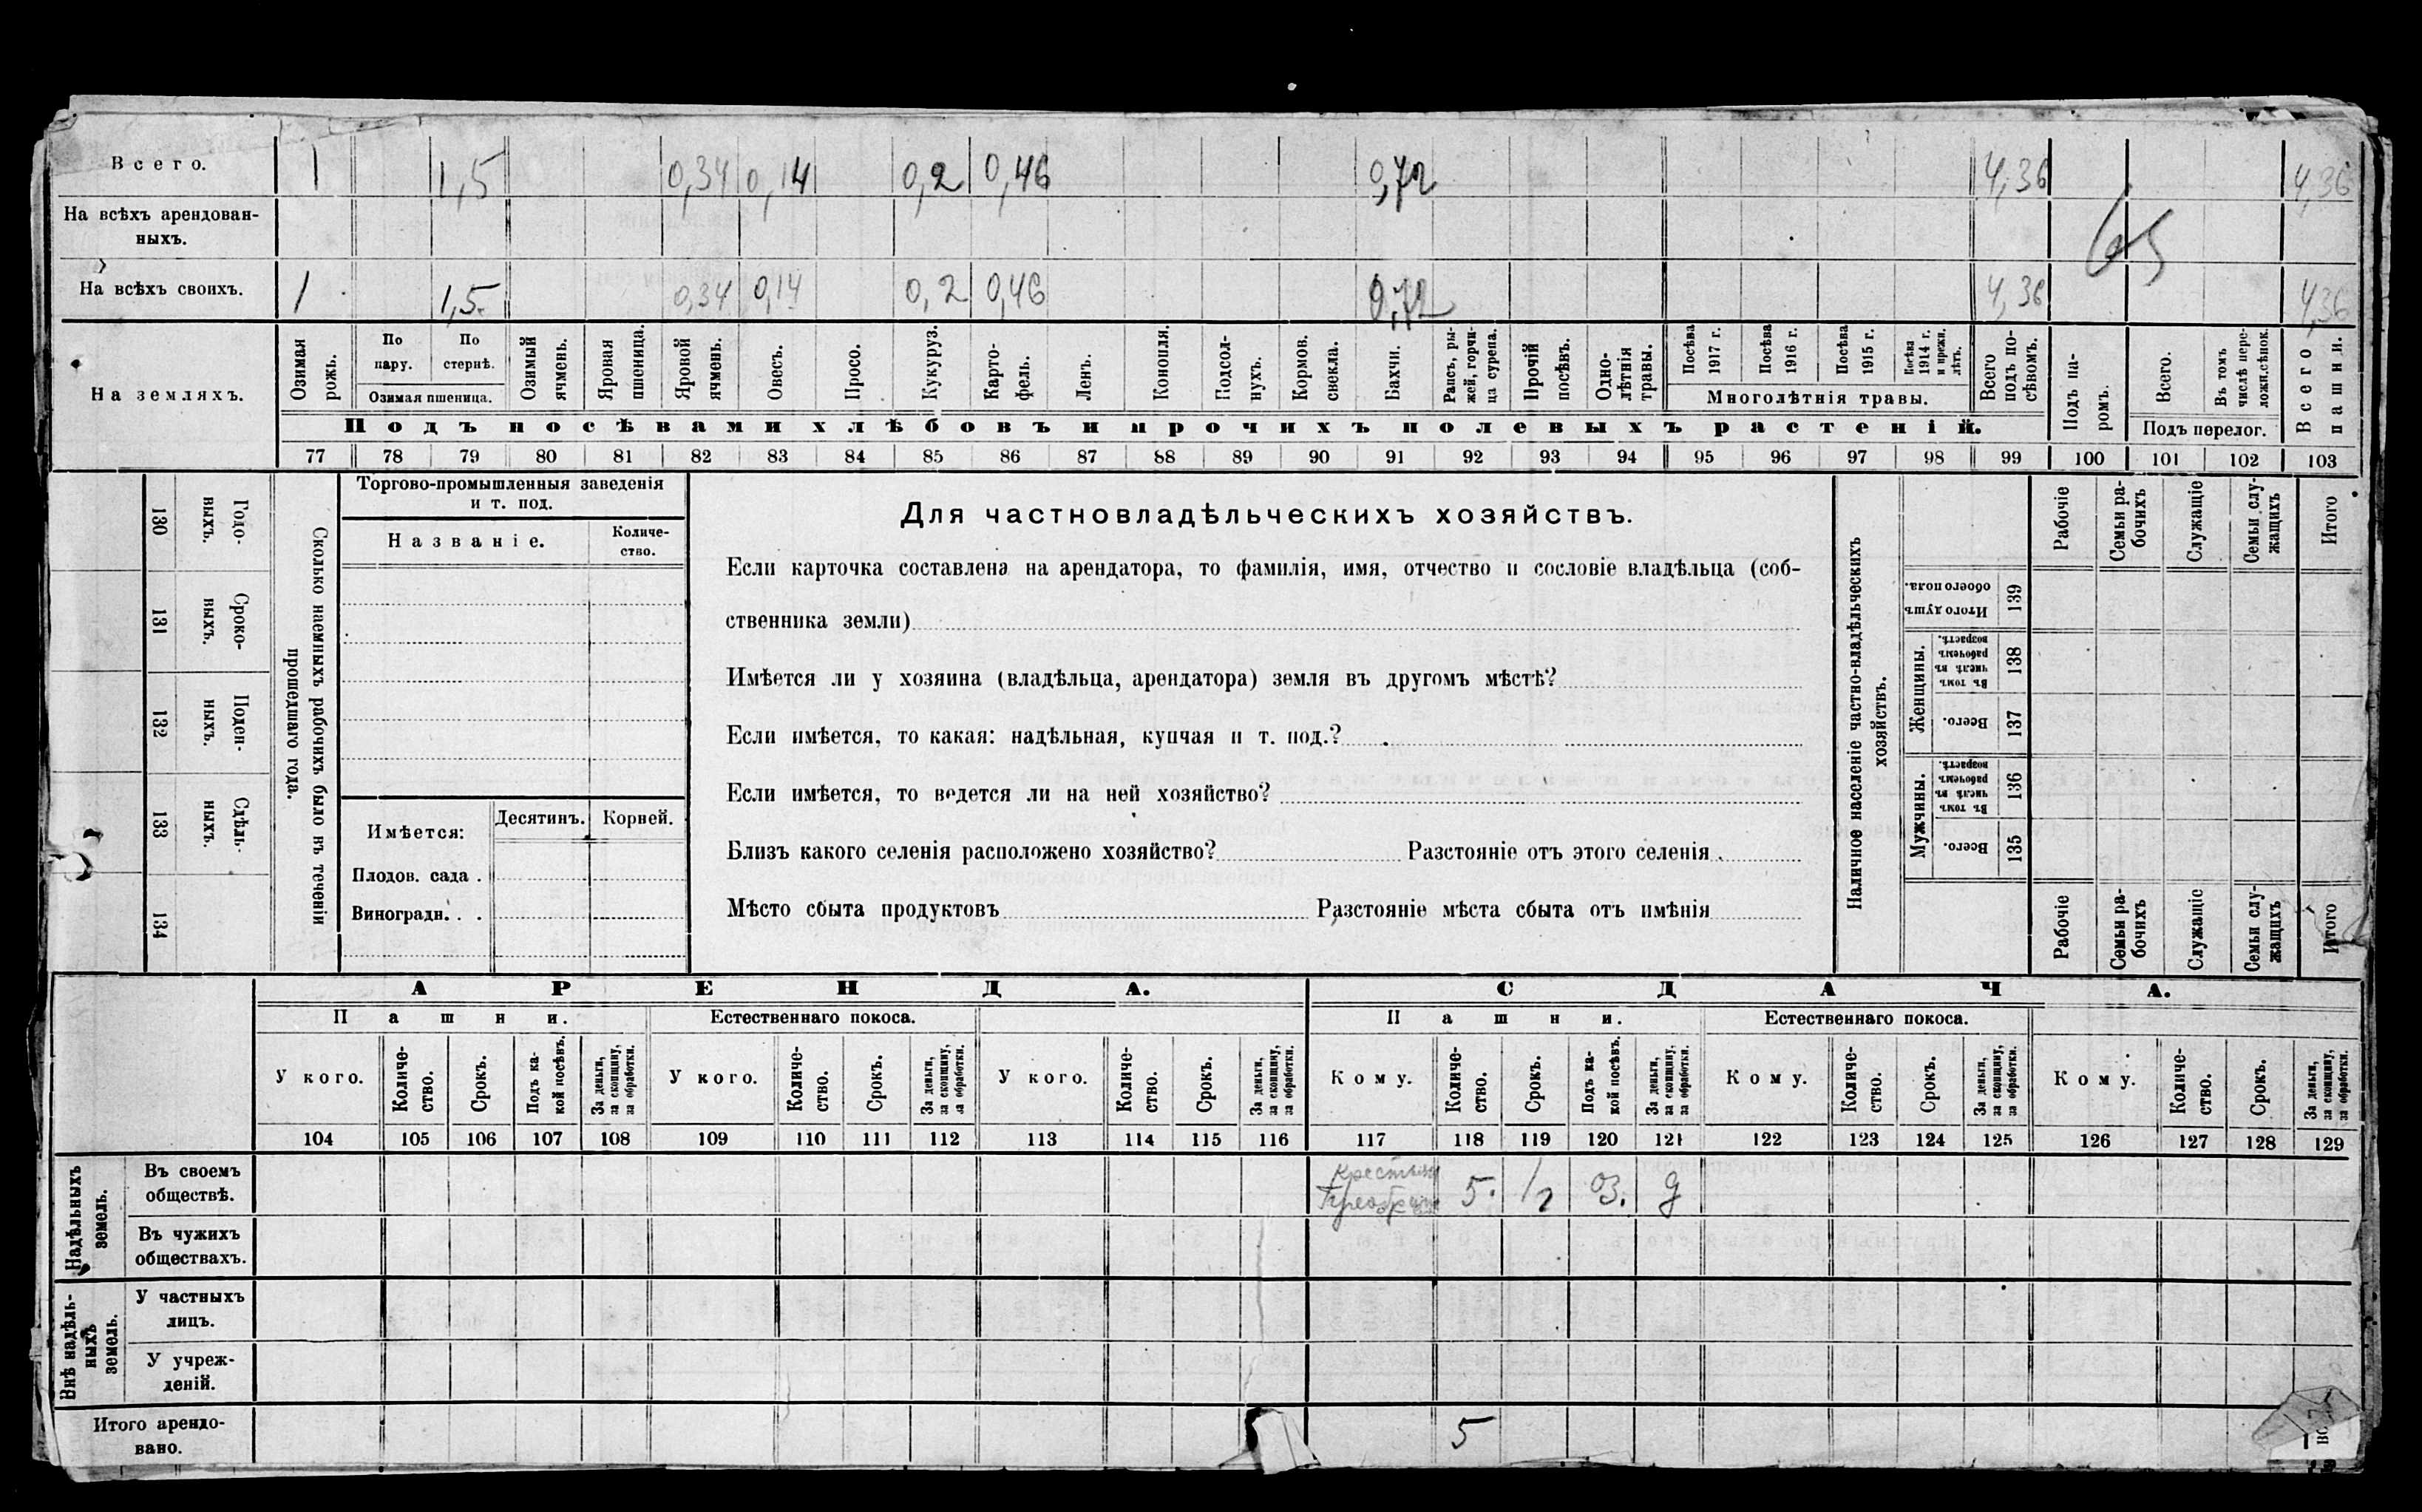 Всего. 1 1,5 0,34 0,14 0,2 0,46 0,72 4,36 4,36
На всѣхъ арендован-
ныхъ.
65
На всѣхъ своихъ. 1 1,5 0,34 0,14 0,2 0,46 0,72 4,36 4,36
На земляхъ.
Озимая рожь.
По пару.
По стернѣ.
Озимая пшеница.
Озимый ячмень.
Яровая пшеница.
Яровой ячмень.
Овесъ.
Просо.
Кукуруз.
Карто-
фель.
Ленъ.
Конопля.
Подсол-
нухъ.
Кормов. свекла.
Бахчи.
Рапсъ, ры-
жей, горчи-
ца сурепа.
Прочій посѣвъ.
Одно-
лѣтнія травы.
Посѣва 1917 г.
Посѣва 1916 г.
Посѣва 1915 г.
Посѣва 1914 г. и прежн. лѣтъ.
Многолѣтнія травы.
Всего подъ по-
сѣвомъ.
Подъ па-
ромъ.
Всего.
Въ томъ числѣ пере-
ложн. сѣнок.
Подъ перелог.
Всего пашни.
Подъ посѣвами хлѣбовъ и прочихъ полевыхъ растеній.
77 78 79 80 81 82 83 84 85 86 87 88 89 90 91 92 93 94 95 96 97 98 99 100 101 102 103
130 Годо-
выхъ.
131 Сроко-
выхъ.
132 Поден-
ныхъ.
133 Сдѣль-
ныхъ.
134
Сколько наемныхъ рабочихъ было въ теченіи
прошедшаго года.
Торгово-промышленныя заведенія
и т. под.
Названіе.
Количе-
ство.
Имѣется:
Десятинъ.
Корней.
Плодов. сада .
Виноградн. . .
Для частновладѣльческихъ хозяйствъ.
Если карточка составлена на арендатора, то фамилія, имя, отчество и сословіе владѣльца (соб-
ственника земли)
Имѣется ли у хозяина (владѣльца, арендатора) земля въ другомъ мѣстѣ?
Если имѣется, то какая: надѣльная, купчая и т. под.?
Если имѣется, то ведется ли на ней хозяйство?
Близъ какого селенія расположено хозяйство? Разстояніе отъ этого селенія
Мѣсто сбыта продуктовъ Разстояніе мѣста сбыта отъ имѣнія
Наличное населеніе частно-владѣльческихъ
хозяйствъ.
Рабочіе
Семьи ра-
бочихъ
Служащіе
Семьи слу-
жащихъ
Итого
Итого душъ обоего пола. 139
Женщины.
Въ томъ числѣ въ рабочемъ возрастѣ. 138
Всего. 137
Мужчины.
Въ томъ числѣ въ рабочемъ возрастѣ. 136
Всего. 135
Рабочіе
Семьи ра-
бочихъ
Служащіе
Семьи слу-
жащихъ
Итого
АРЕНДА.
СДАЧА.
Пашни.
Естественнаго покоса.
Пашни.
Естественнаго покоса.
У кого.
Количе-
ство.
Срокъ.
Подъ ка-
кой посѣвъ.
За деньги,
за скопщину,
за обработки.
У кого.
Количе-
ство.
Срокъ.
За деньги,
за скопщину,
за обработки.
У кого.
Количе-
ство.
Срокъ.
За деньги,
за скопщину,
за обработки.
Кому.
Количе-
ство.
Срокъ.
Подъ ка-
кой посѣвъ.
За деньги,
за скопщину,
за обработки.
Кому.
Количе-
ство.
Срокъ.
За деньги,
за скопщину,
за обработки.
Кому.
Количе-
ство.
Срокъ.
За деньги,
за скопщину,
за обработки.
104 105 106 107 108 109 110 111 112 113 114 115 116 117 118 119 120 121 122 123 124 125 126 127 128 129
Надѣльныхъ
земель.
Въ своемъ
обществѣ.
5. 1/2 Оз. д
Въ чужихъ
обществахъ.
Внѣ надѣль-
ныхъ
земель.
У частныхъ
лицъ.
У учреж-
деній.
Итого арендо-
вано.
5